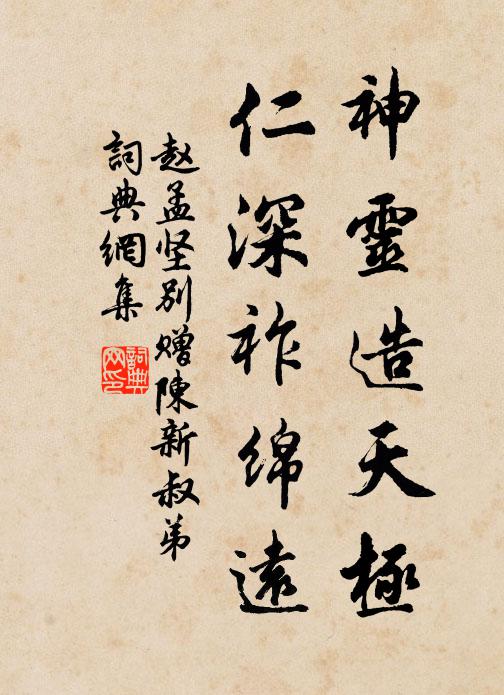 神靈造天極
仁深祚绵遠
赵孟坚别赠陳新叔弟
詞典網集
詞典网印